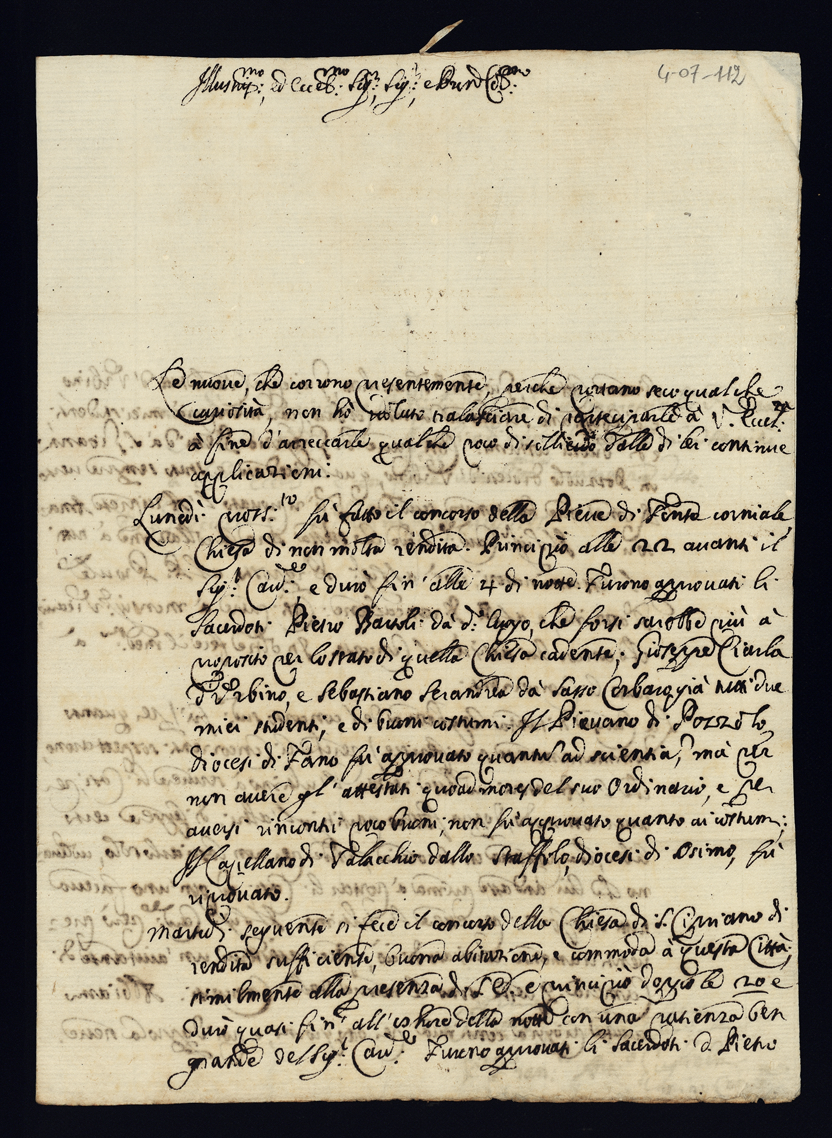 4-07-112
Illustriss:mo ed Ecc:mo Sig:r, Sig:r, e Pron Col:mo
Le nuove, che corrono presentemente, perche portano seco qualche
curiosità, non hò voluto tralasciare di participarle à V. Ecc:za
à fine d'arreccarle qualche poco di sollievo dalle di lei continue
applicazioni:
Lunedì pross:to fù fatto il concorso della Pieve di Fonte corniale
Chiesa di non molta rendita. Principiò alle 22 avanti il
Sig:r Card:le, e durò fin' alle 4 di notte. Furono approvati li
Sacerdoti Pietro Bartoli da che forsi sarebbe più à
proposito per lo stato di quella Chiesa cadente, Giuseppe Ciarla
d'Urbino, e Sebastiano Serandrea da Sasso Corbaro già tutti due
miei studenti, e di buoni costumi. Il Pievano di Pozzolo
diocesi di Fano fù approvato quant' ad scientia, mà per
non avere gl' attestati quoad mores del suo Ordinario, e per
aversi rincontri poco buoni, non fù approvato quanto ai costumi;
Il Capellano di Talacchio dallo Staffolo, diocesi di Osimo, fù
riprovato.
Martedì seguente si fece il concorso della Chiesa di S. Cipriano di
rendita sufficiente, buona abitazione, e commoda à questa Città,
similmente alla presenza di S. E. e principiò doppo le 20 e
durò quasi fin' all' hore della notte con una pazienza ben
grande del Sig:r Card:le Furono approvati li Sacerdoti D. Pietro